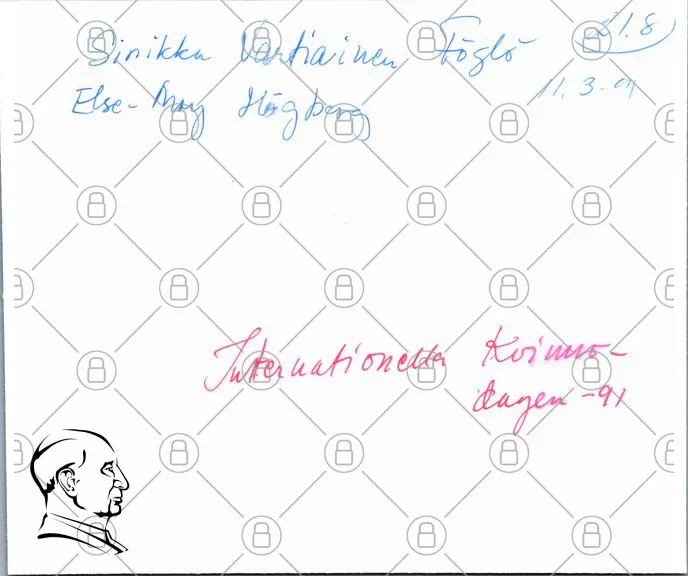 Sinikka Vartiainen Föglö
Else-May Högberg
11.3-91
Internationella Kvinno-
dagen -91